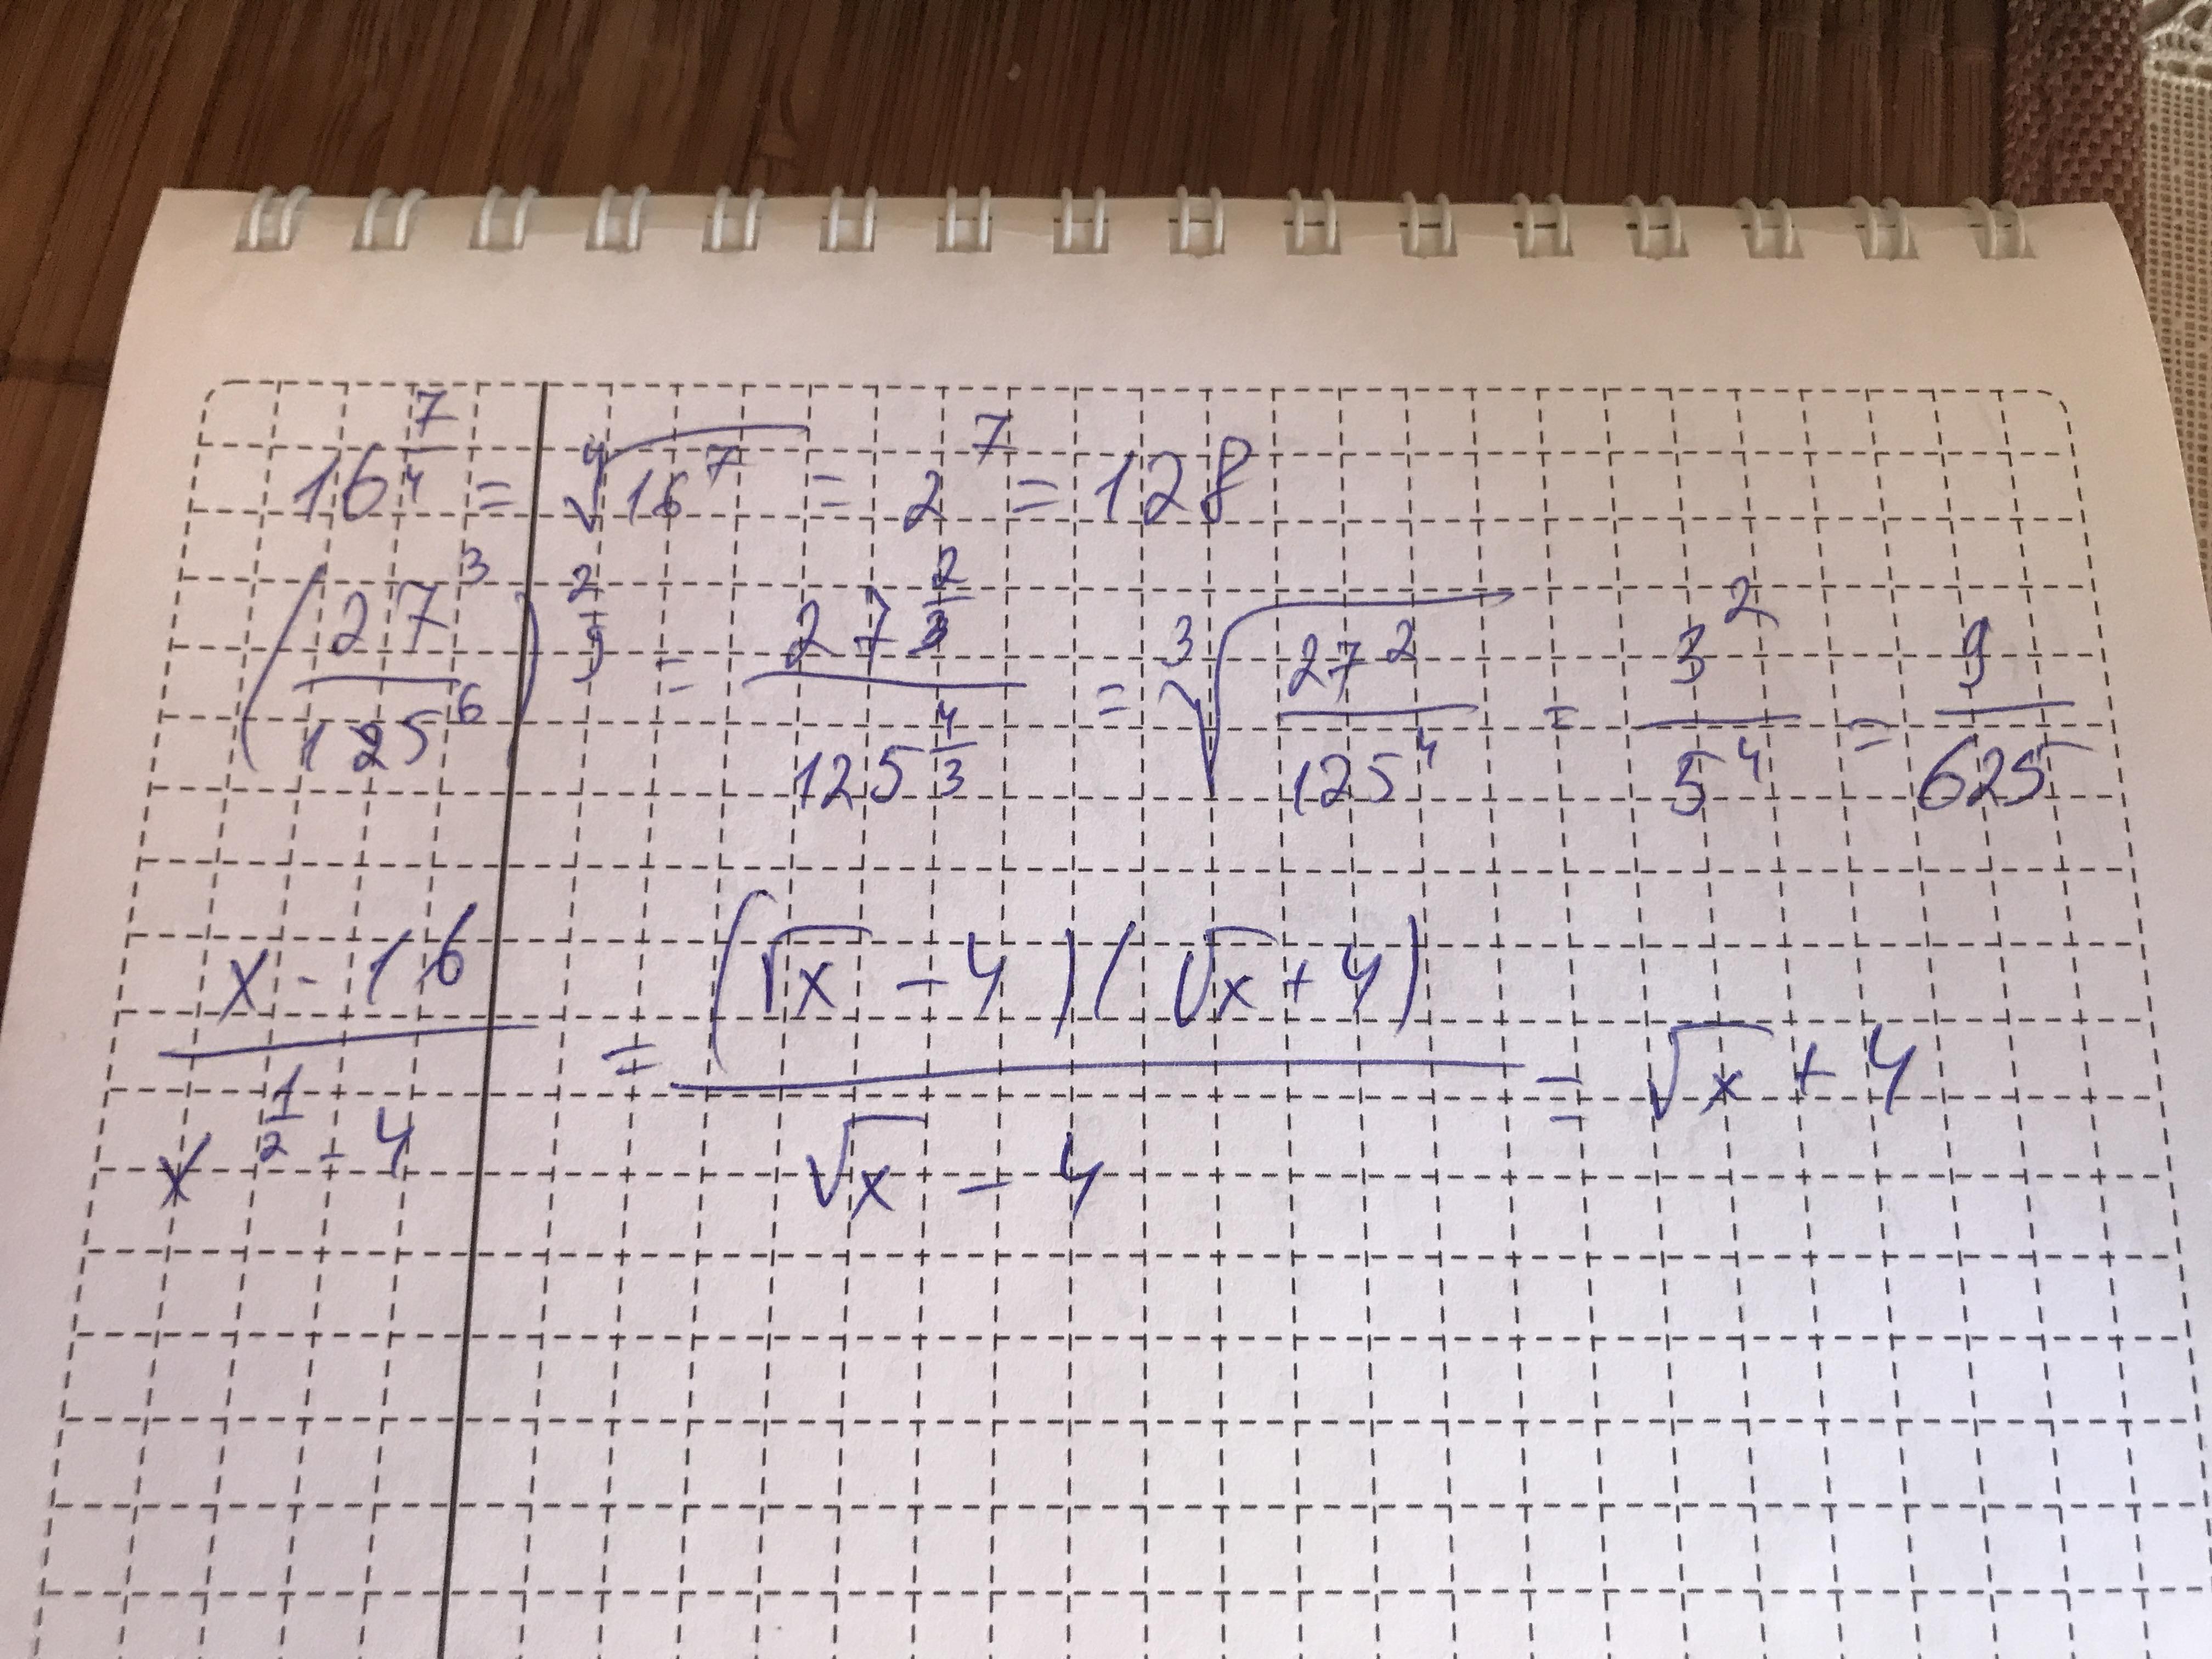 16^(7/4) = ⁴√(16^7) = 2^7 = 128
(27^3 / 125^6)^(2/9) = 27^(2/3) / 125^(4/3) = ³√(27^2 / 125^4) = 3^2 / 5^4 = 9 / 625
(x - 16) / (x^(1/2) - 4) = (√x - 4)(√x + 4) / (√x - 4) = √x + 4